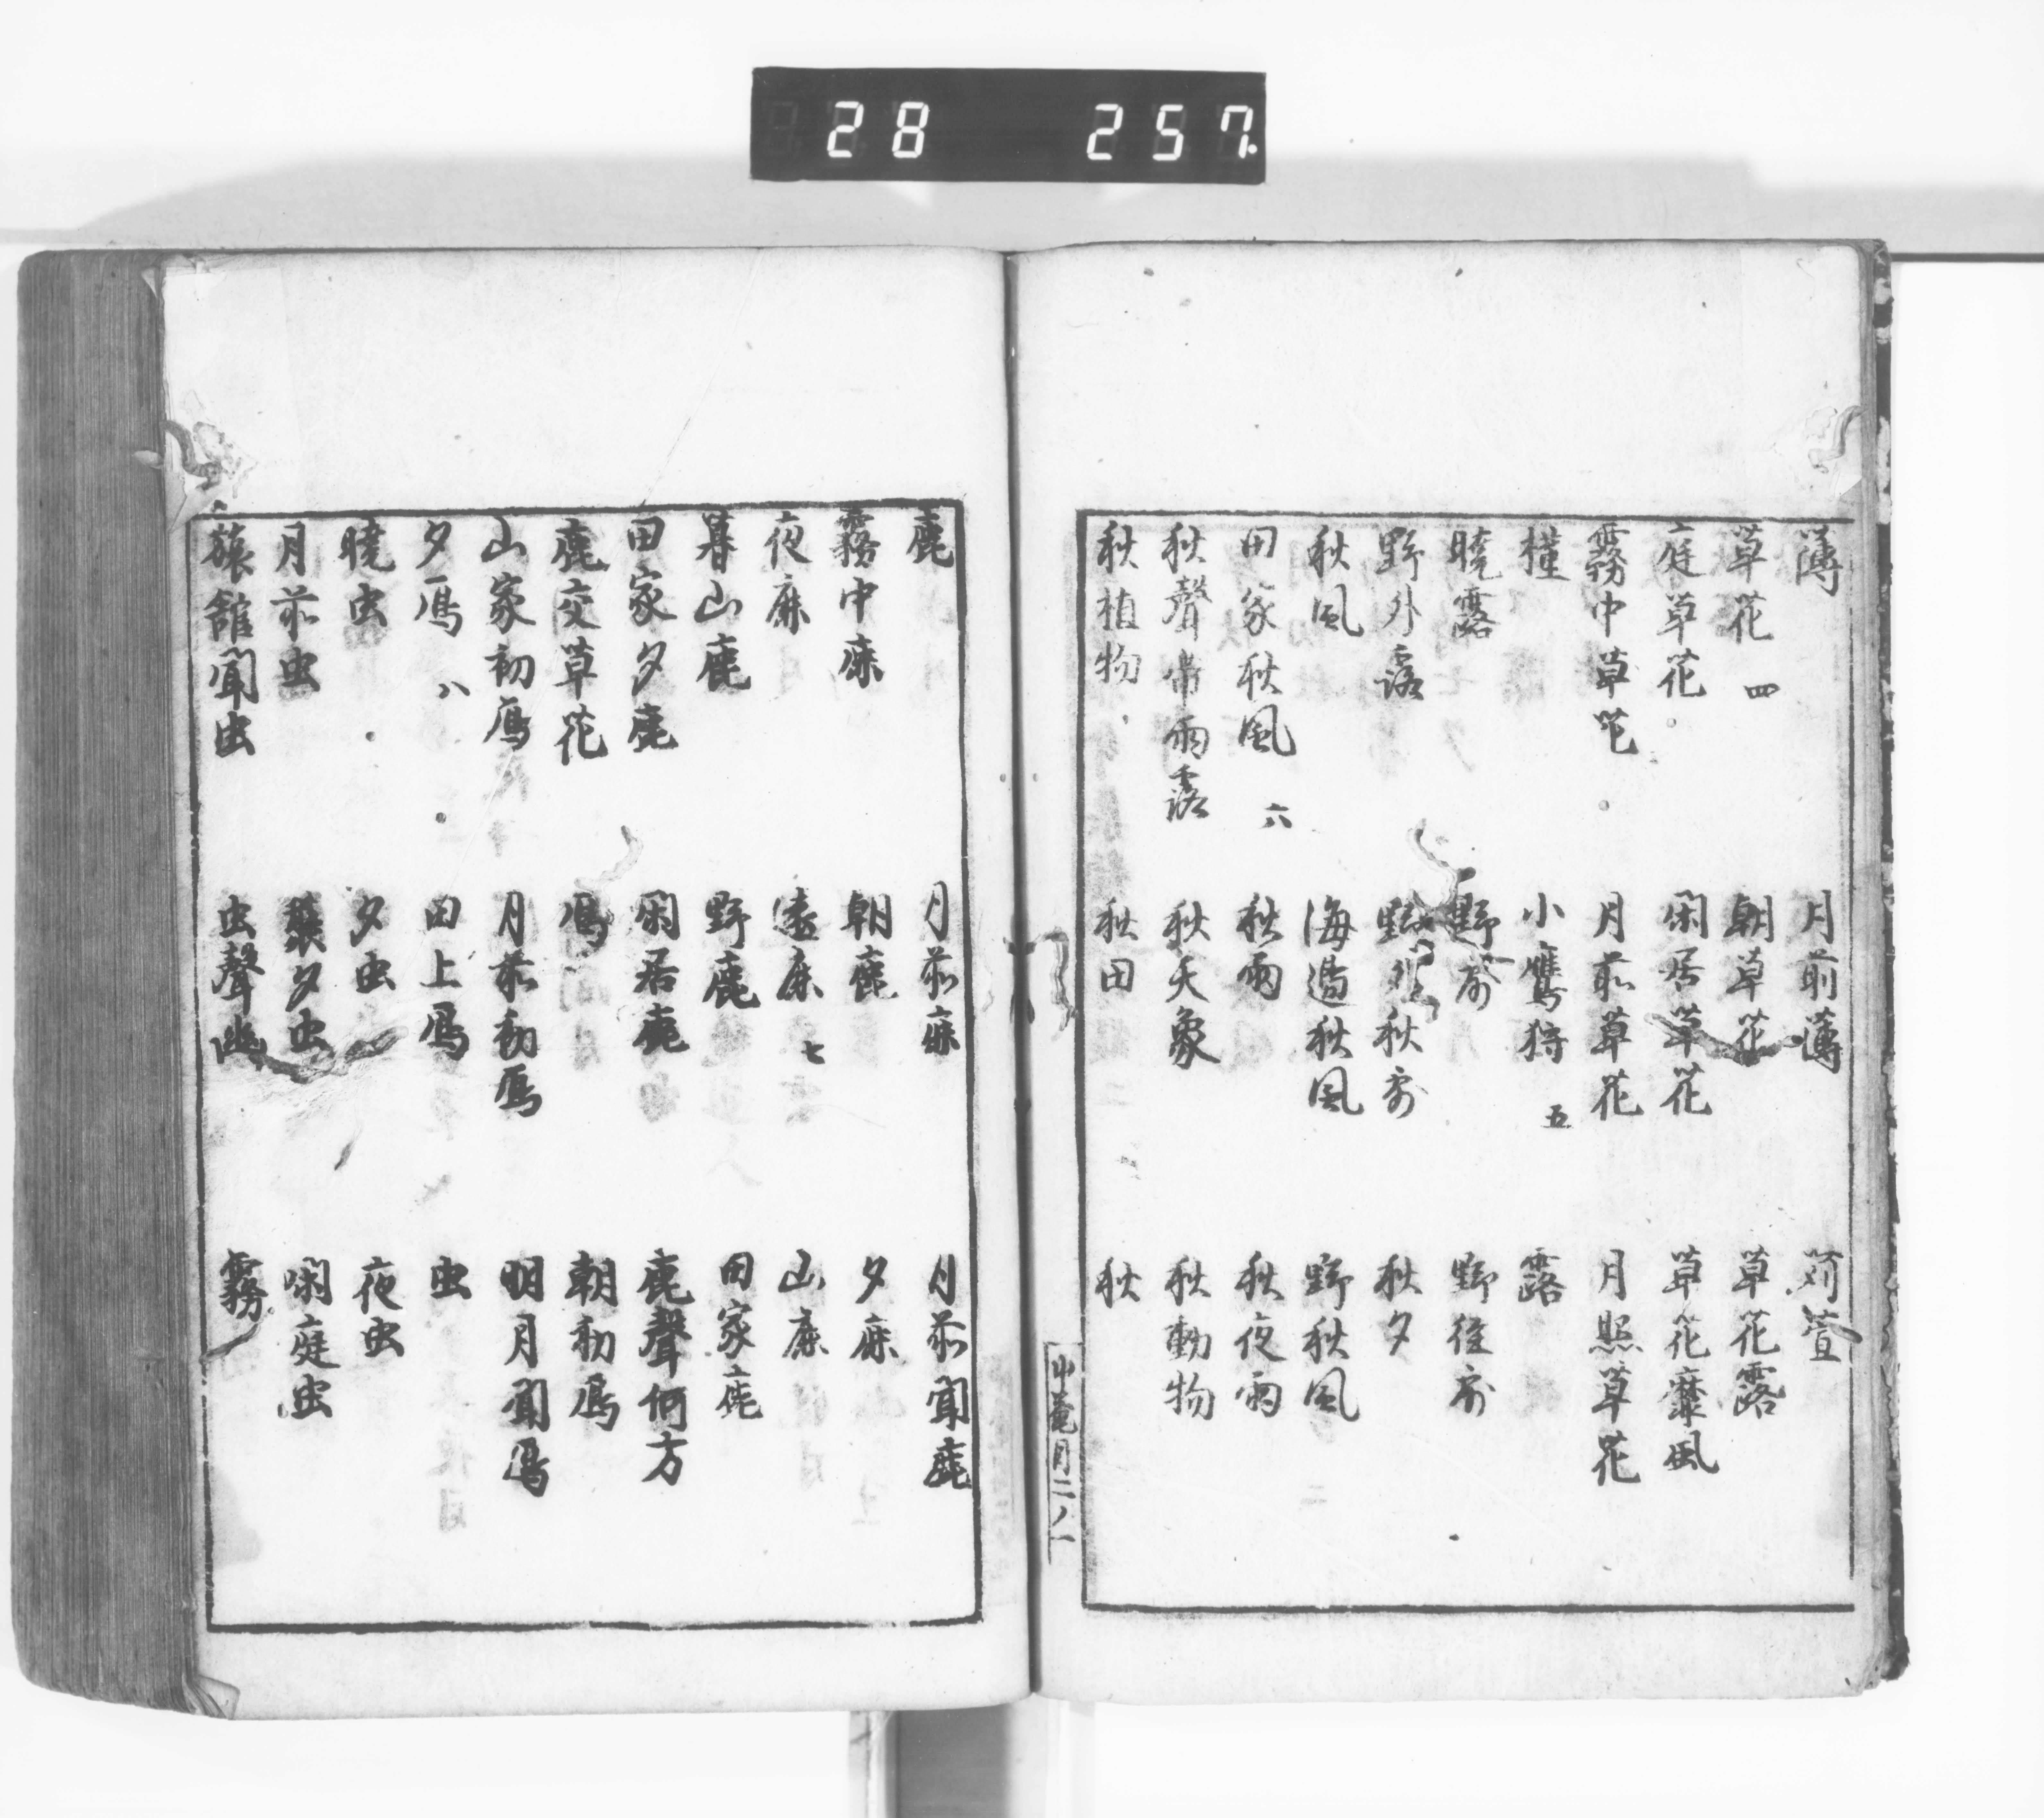 28 257
薄 月前薄 苅萱
草花 四 朝草花 草花露
庭草花 閑居草花 草花靡風
霧中草花 月前草花 月照草花
槿 小鷹狩 五 露
暁露 野 野径
野外露 秋夕
秋風 海邊秋風 野秋風
田家秋風 六 秋雨 秋夜雨
秋聲帯雨露 秋天象 秋動物
秋植物 秋田 秋
月二ノ一
鹿 月前鹿 月前聞鹿
霧中鹿 朝鹿 夕鹿
夜鹿 遠鹿 七 山鹿
暮山鹿 野鹿 田家鹿
田家夕鹿 閑居鹿 鹿聲何方
鹿交草花 鴈 朝初鴈
山家初鴈 月前初鴈 明月聞鴈
夕鴈 八 田上鴈 虫
暁虫 夕虫 夜虫
月前虫 夕虫 閑庭虫
旅館聞虫 虫聲幽 霧